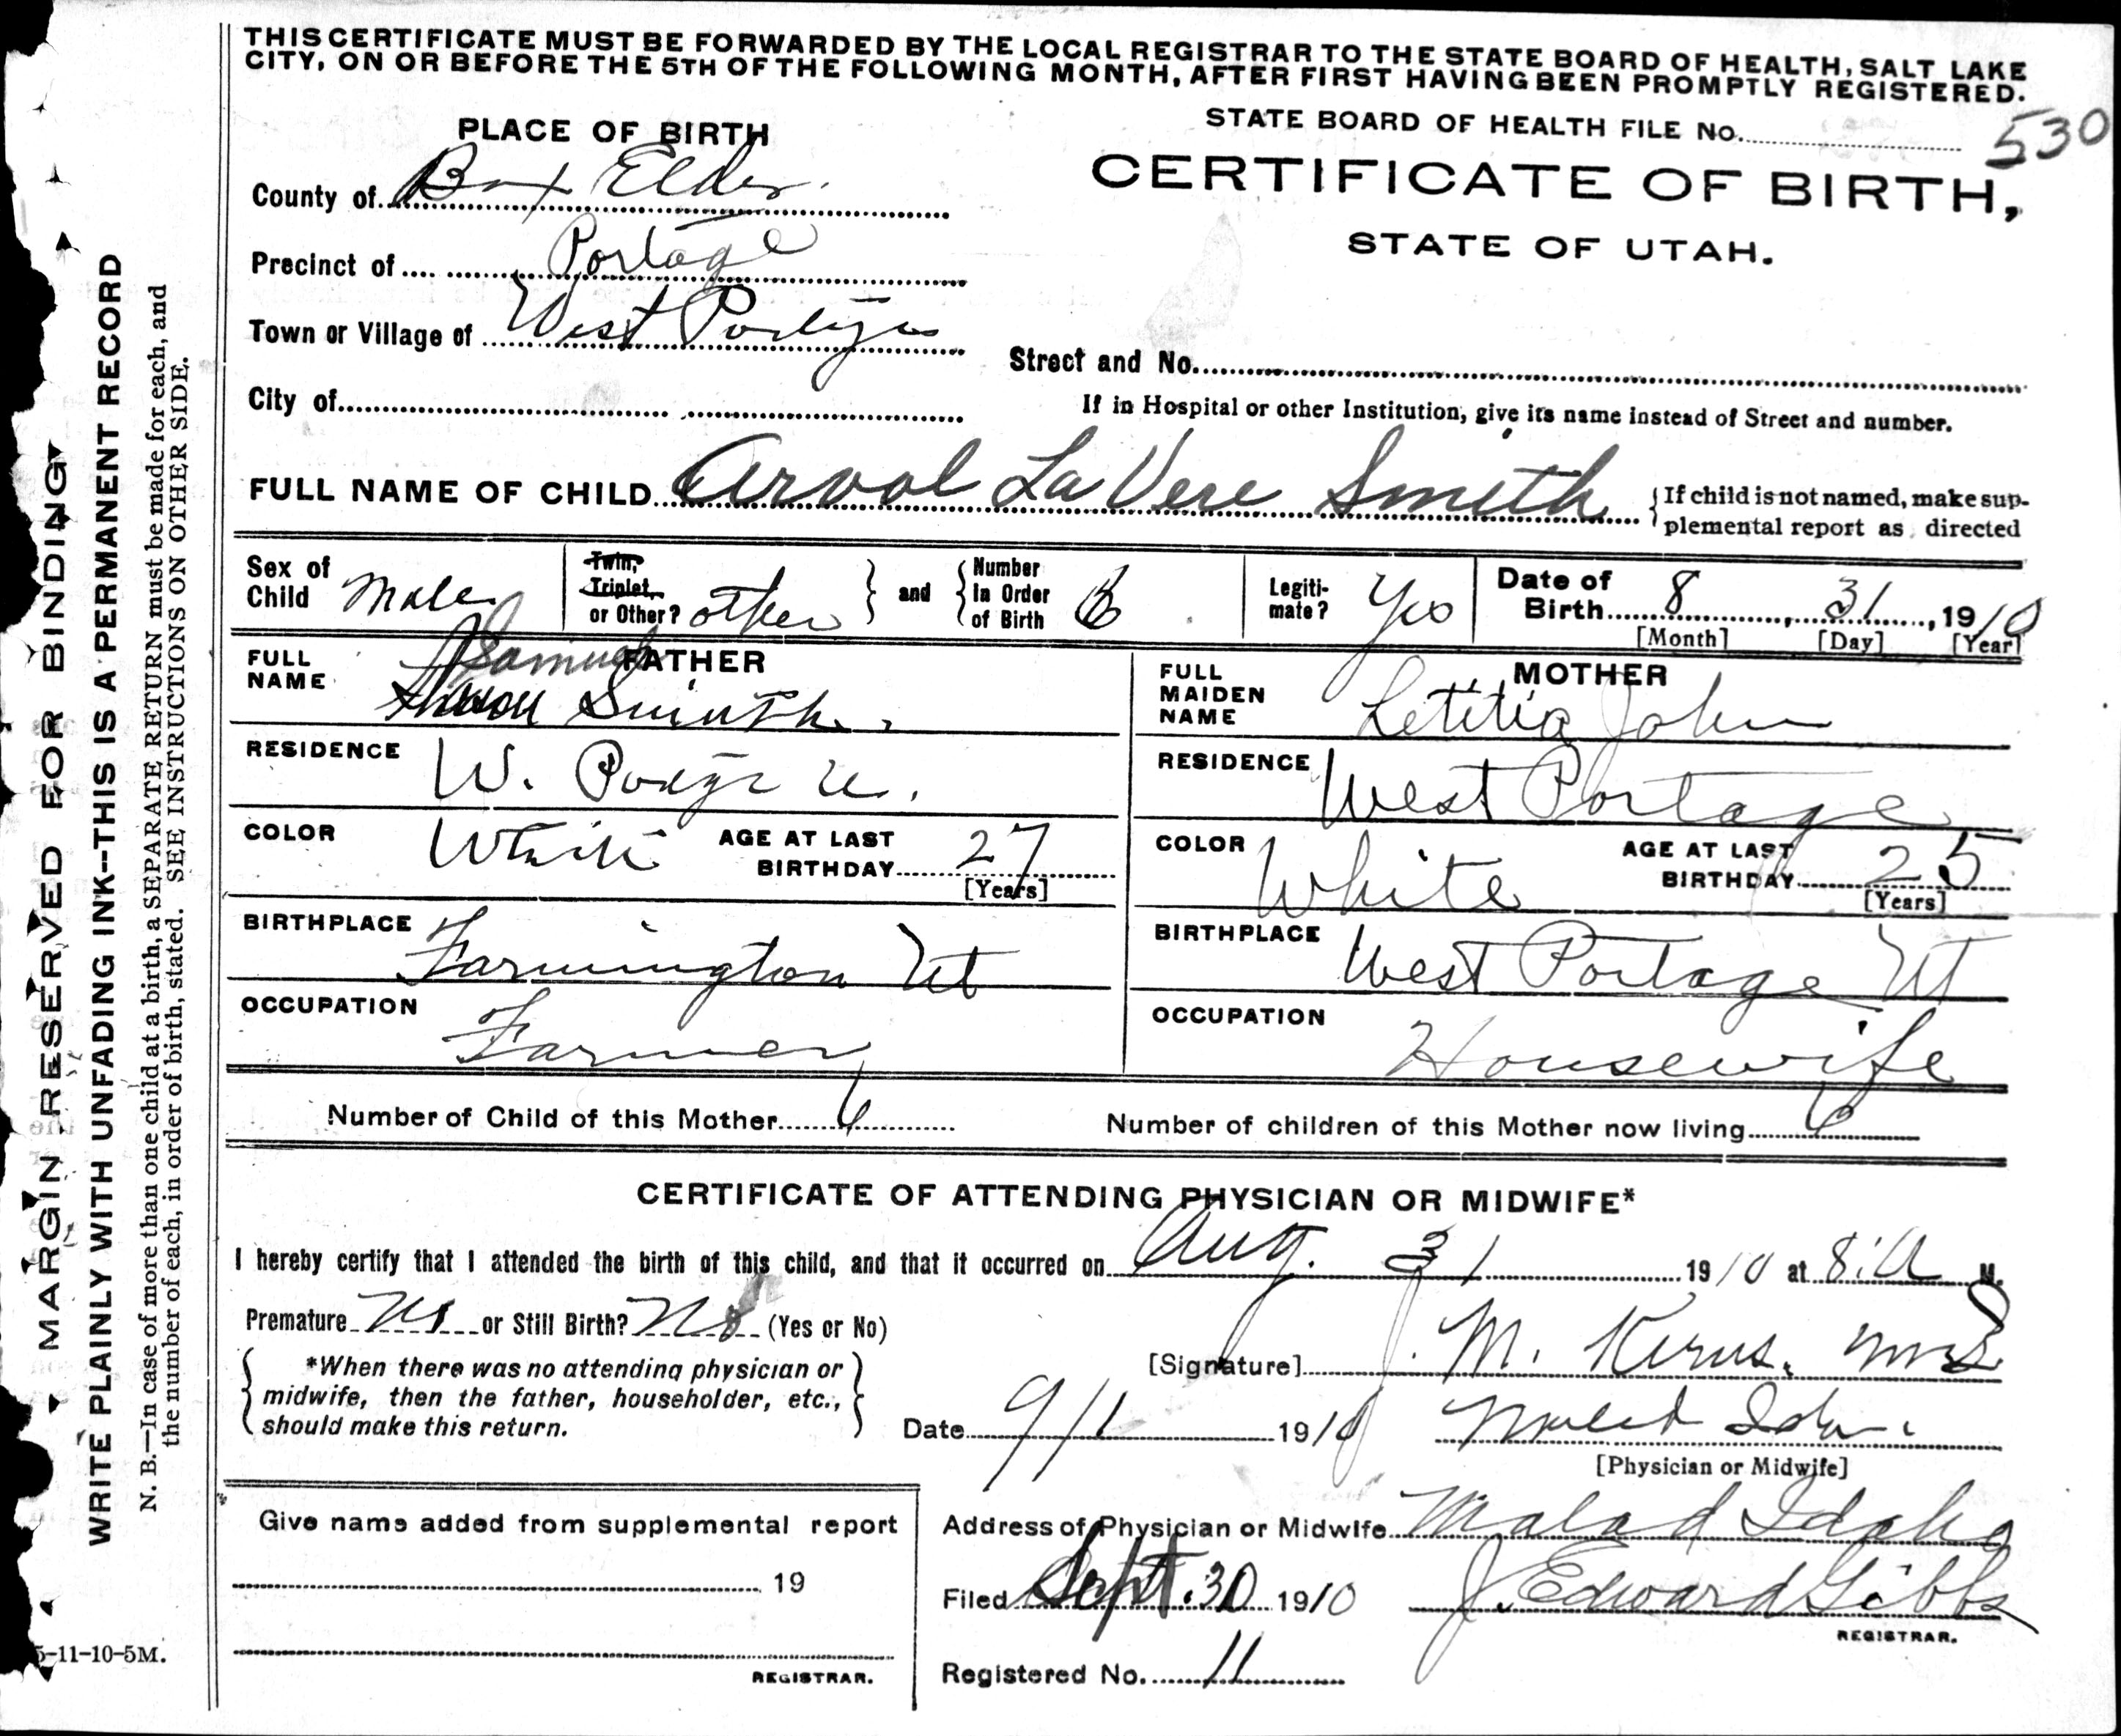 THIS CERTIFICATE MUST BE FORWARDED BY THE LOCAL REGISTRAR TO THE STATE BOARD OF HEALTH, SALT LAKE
CITY, ON OR BEFORE THE 5TH OF THE FOLLOWING MONTH, AFTER FIRST HAVING BEEN PROMPTLY REGISTERED.
STATE BOARD OF HEALTH FILE No. 530
CERTIFICATE OF BIRTH,
STATE OF UTAH.
PLACE OF BIRTH
County of Box Elder
Precinct of Portage
Town or Village of West Portage
City of
Street and No.
If in Hospital or other Institution, give its name instead of Street and number.
FULL NAME OF CHILD Arvol La Vere Smith
{ If child is not named, make sup-
plemental report as directed
Sex of Child Male
Twin, Triplet, or Other? other } and { Number In Order of Birth 6
Legiti-mate? Yes
Date of Birth 8 31, 1910
[Month] [Day] [Year]
FATHER
FULL NAME Samuel Smith
RESIDENCE W. Portage U.
COLOR White AGE AT LAST BIRTHDAY 27
[Years]
BIRTHPLACE Farmington Ut
OCCUPATION Farmer
MOTHER
FULL MAIDEN NAME Letitia John
RESIDENCE West Portage
COLOR White AGE AT LAST BIRTHDAY 25
[Years]
BIRTHPLACE West Portage Ut
OCCUPATION Housewife
Number of Child of this Mother 6
Number of children of this Mother now living 6
CERTIFICATE OF ATTENDING PHYSICIAN OR MIDWIFE*
I hereby certify that I attended the birth of this child, and that it occurred on Aug. 31 1910 at 8:A M.
Premature No or Still Birth? No (Yes or No)
{ *When there was no attending physician or
midwife, then the father, householder, etc.,
should make this return. }
[Signature] J. M. Kerns.
Date 9/1 1910 Malad Ida.
[Physician or Midwife]
Address of Physician or Midwife Malad Idaho
Filed Sept. 30 1910 J. Edward Gibbs
REGISTRAR.
Registered No. 11
Give name added from supplemental report
19
REGISTRAR.
MARGIN RESERVED FOR BINDING
WRITE PLAINLY WITH UNFADING INK--THIS IS A PERMANENT RECORD
N. B.—In case of more than one child at a birth, a SEPARATE RETURN must be made for each, and
the number of each, in order of birth, stated. SEE INSTRUCTIONS ON OTHER SIDE.
5-11-10-5M.